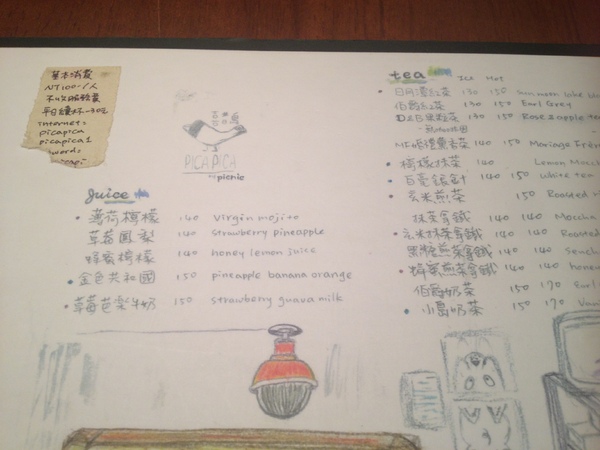 基本消費
NT100-/人
不收服務費
internet:
picapica
picapica1
PICAPICA
picnic
Juice
薄荷檸檬 140 virgin mojito
草莓鳳梨 140 strawberry pineapple
蜂蜜檸檬 140 honey lemon juice
金色共和國 150 pineapple banana orange
草莓芭樂牛奶 150 strawberry guava milk
tea Ice Hot
日月潭紅茶 130 150 sun moon lake bla
伯爵紅茶 130 150 Earl Grey
130 150 Rose & apple tea
150 Mariage Frère
檸檬抹茶 140 Lemon Mocc
白毫銀針 140 150 white tea
玄米煎茶 150 Roasted ri
抹茶拿鐵 140 140 Moccha
玄米抹茶拿鐵 140 140 Roasted
黑糖煎茶拿鐵 140 140 Sench
蜂蜜煎茶拿鐵 140 140 honey
伯爵奶茶 150 170 Earl
小島奶茶 150 170 Vani